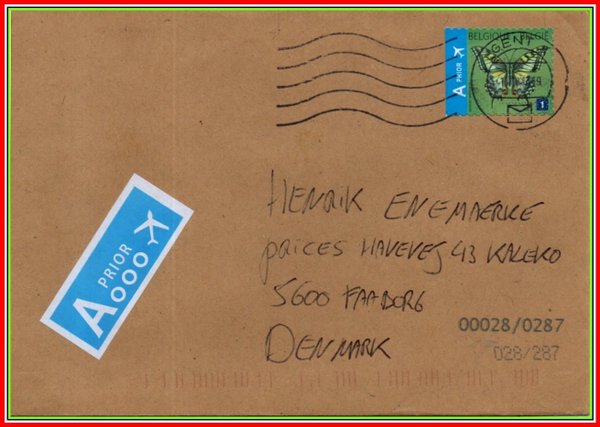 BELGIQUE BELGIË
A PRIOR
GENT
1
A PRIOR
HENRIK ENEMAERKE
PRICES HAVEVEJ 43 KALEKO
5600 FAABORG
DENMARK
00028/0287
028/287